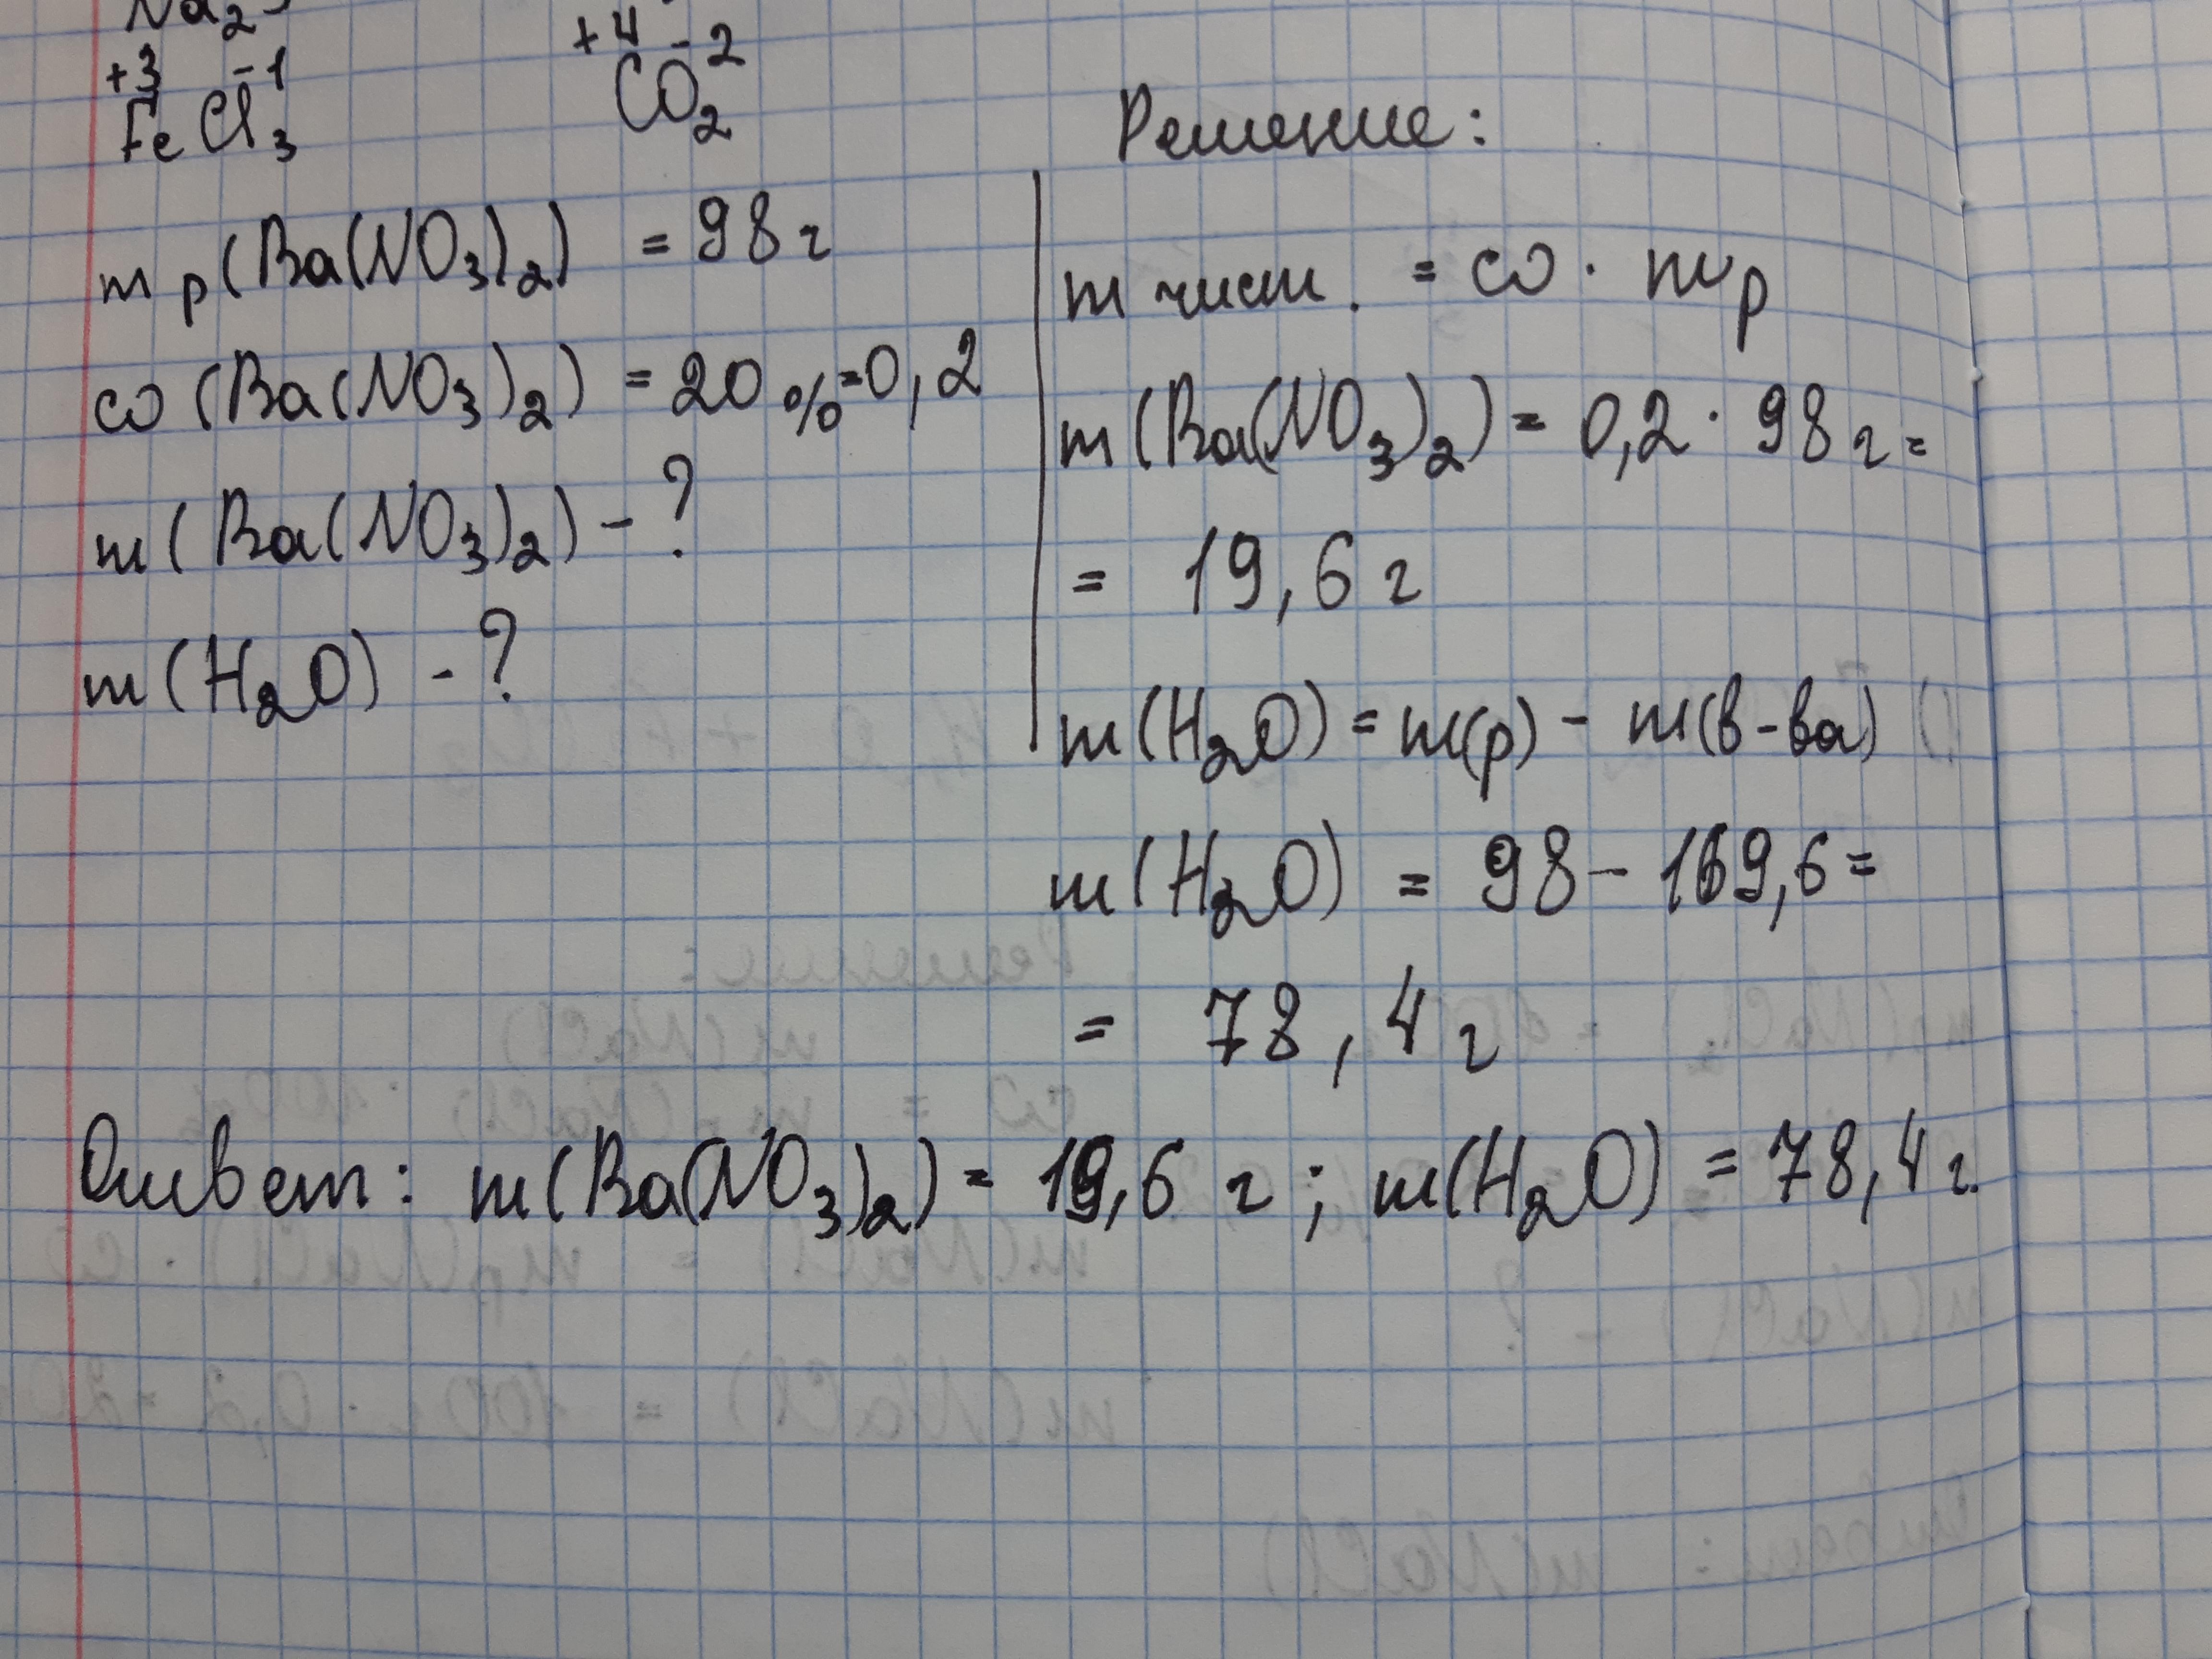 Na₂
+3 -1
FeCl₃
+4 -2
CO₂
mр(Ba(NO₃)₂) = 98 г
ω(Ba(NO₃)₂) = 20%=0,2
m(Ba(NO₃)₂) - ?
m(H₂O) - ?
Решение:
m чист. = ω · mр
m(Ba(NO₃)₂) = 0,2 · 98 г =
= 19,6 г
m(H₂O) = m(р) - m(в-ва)
m(H₂O) = 98 - 19,6 =
= 78,4 г
Ответ: m(Ba(NO₃)₂) = 19,6 г; m(H₂O) = 78,4 г.